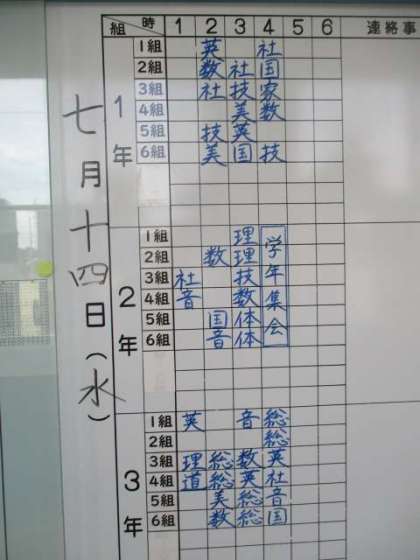 組 時 1 2 3 4 5 6 連絡事
七月十四日(水)
1年
1組 英 社
2組 数 社 国
3組 社 技 家
4組 美 数
5組 技 英
6組 美 国 技
2年
1組 理
2組 数 理
3組 社 技
4組 音 数
5組 国 体
6組 音 体
学年集会
3年
1組 英 音 総
2組 総
3組 理 総 数 英
4組 道 総 英 社
5組 美 総 音
6組 数 総 国